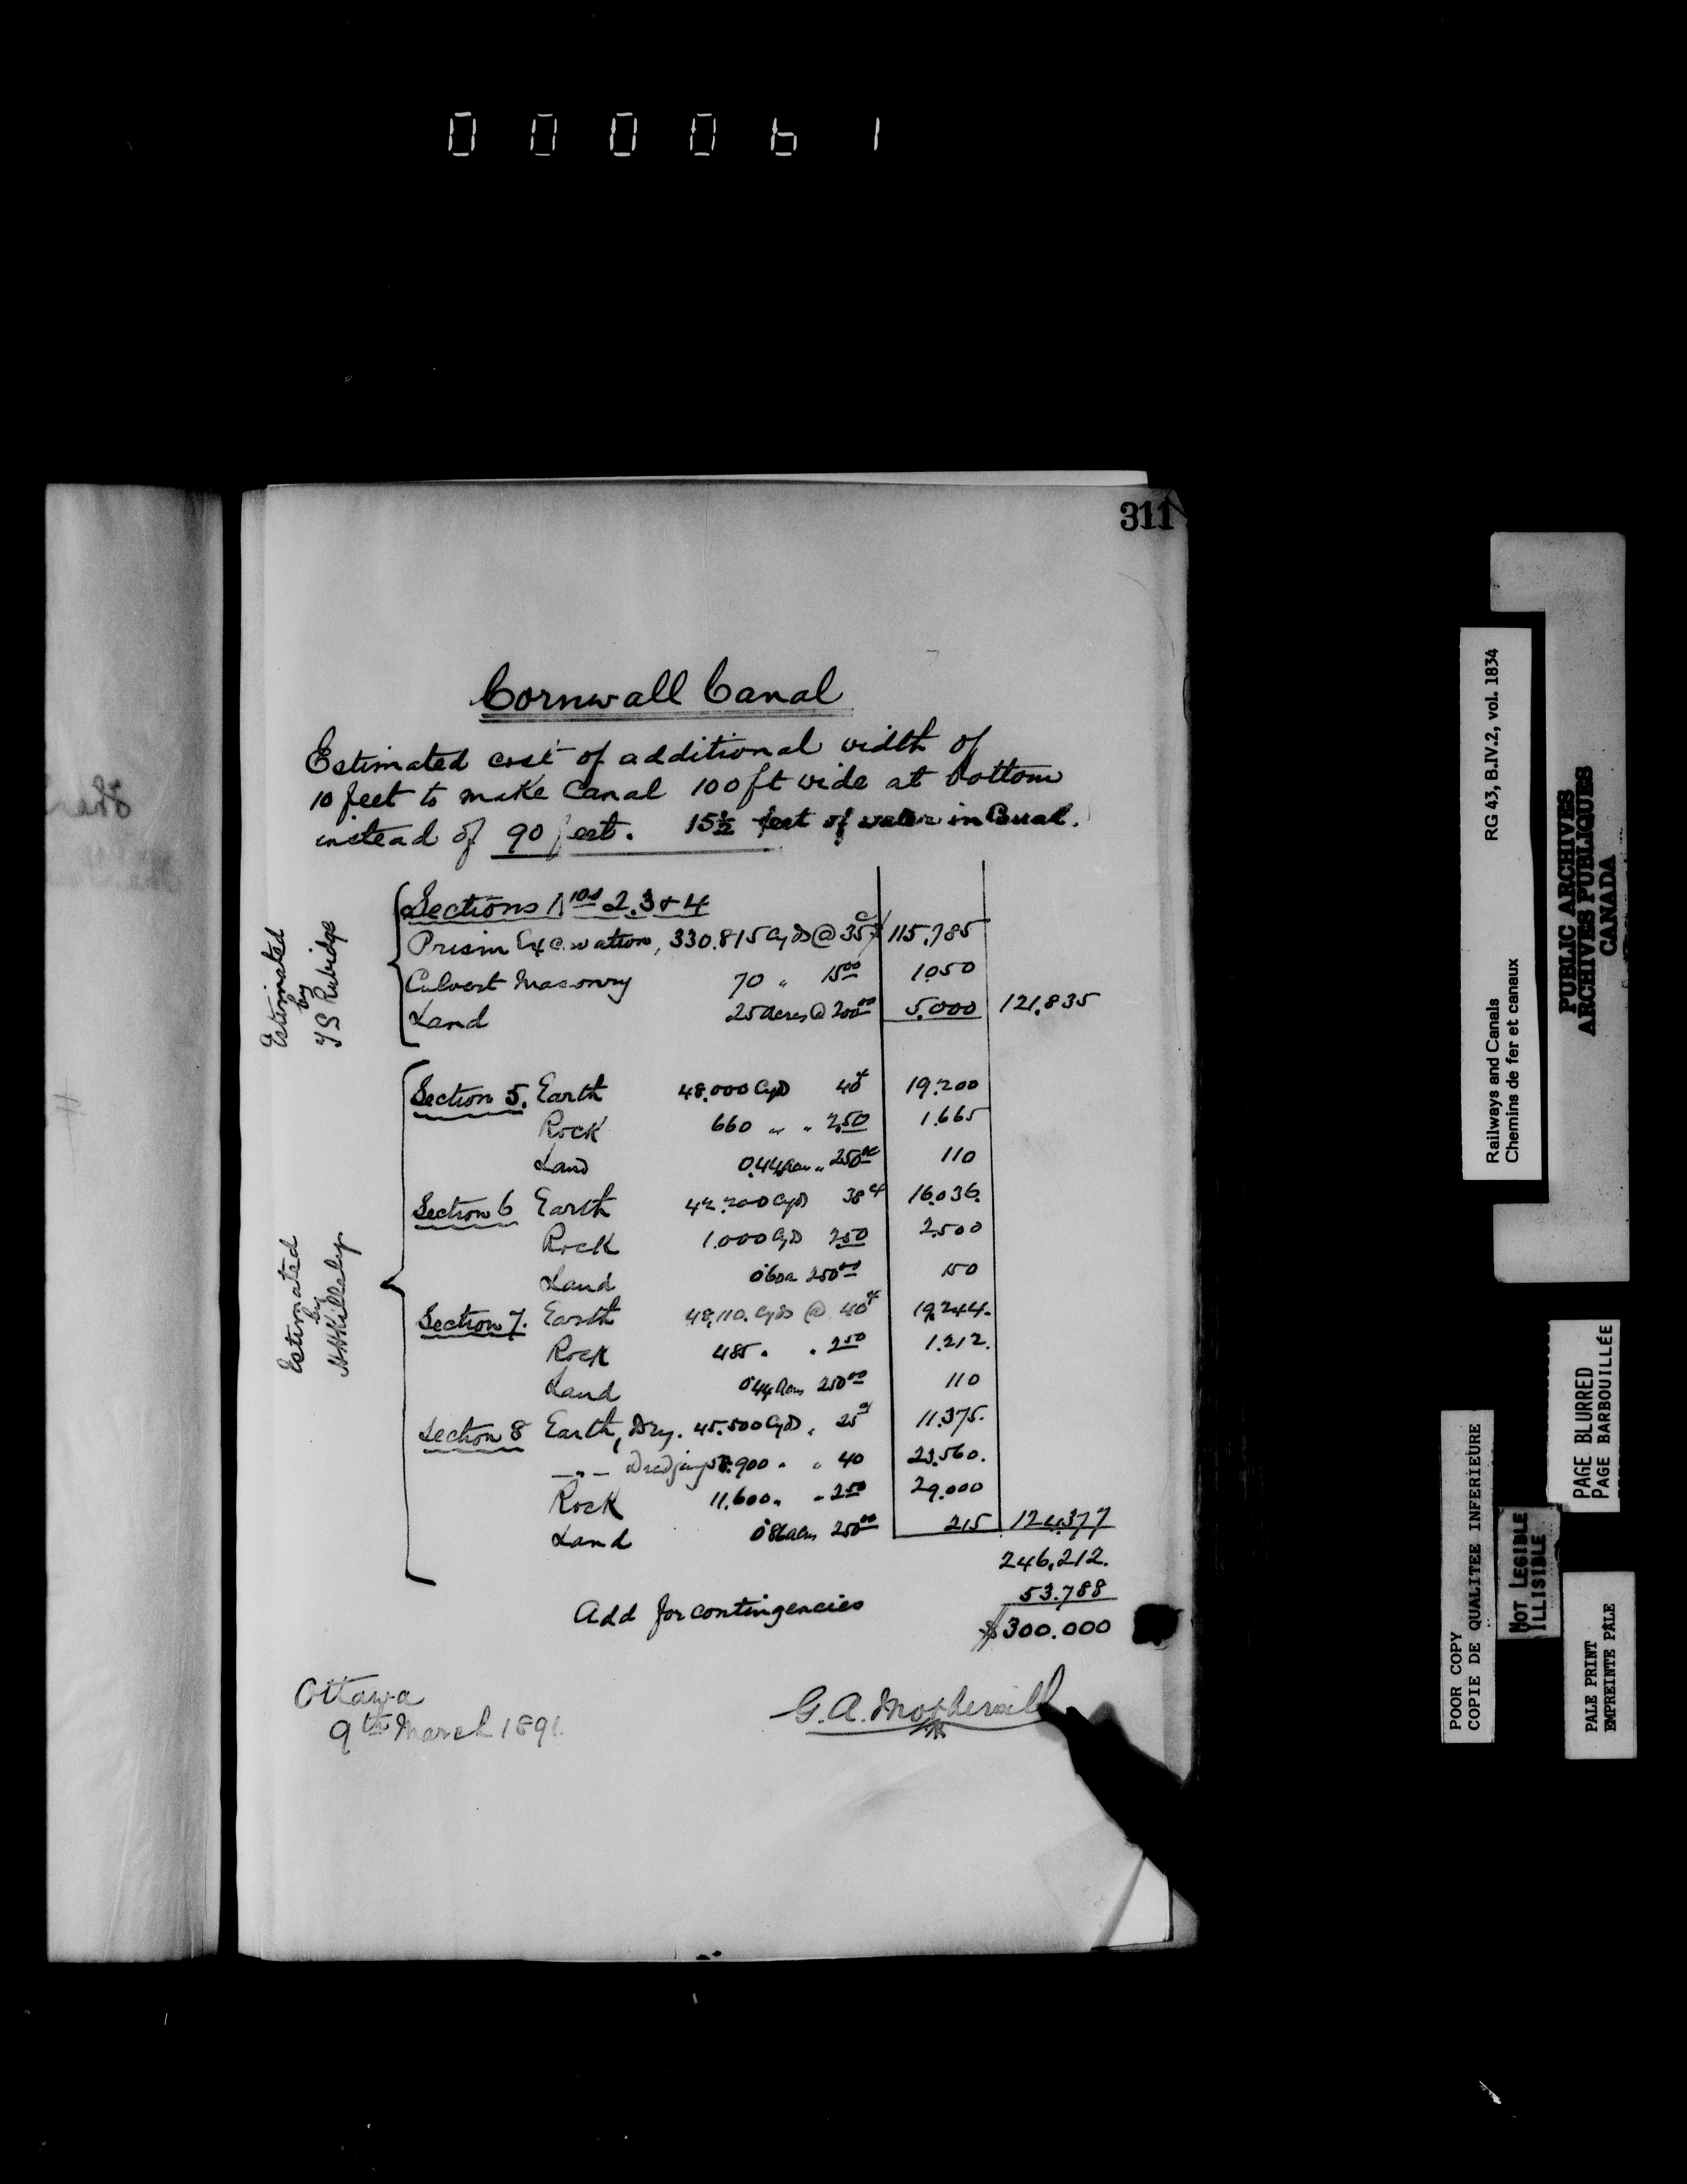 000061
311
Cornwall Canal
Estimated cost of additional width of
10 feet to make Canal 100 ft wide at bottom
instead of 90 feet. 15½ feet of water in Canal.
Estimated
by
T S Rubidge
Sections Nos 2.3 & 4
Prism Excavation, 330.815 Cyds @ 35¢ 115.785
Culvert Masonry 70 " 15.00 1050
Land 25 acres @ 200.00 5.000 121.835
Estimated
by
Section 5. Earth 48.000 Cyds 40¢ 19.200
Rock 660 " " 2.50 1.665
Land 0.44 acre " 250.00 110
Section 6 Earth 42.200 Cyds 38¢ 16.036.
Rock 1.000 Cyds 2.50 2.500
Land 0.60 a 250.00 150
Section 7. Earth 48,110. Cyds @ 40¢ 19,244.
Rock 485 " " 2.50 1.212.
Land 0.44 acre 250.00 110
Section 8 Earth, Dry. 45.500 Cyds " 25¢ 11.375.
— " — Dredging 58.900 " " 40 23.560.
Rock 11.600 " " 2.50 29.000
Land 0.86 acre 250.00 215 124,377
246,212.
Add for contingencies 53.788
$300.000
Ottawa
9th March 1891.
G. A. Motherwell
RG 43, B.IV.2, vol. 1834
Railways and Canals
Chemins de fer et canaux
PUBLIC ARCHIVES
ARCHIVES PUBLIQUES
CANADA
PAGE BLURRED
PAGE BARBOUILLÉE
POOR COPY
COPIE DE QUALITEE INFERIEURE
NOT LEGIBLE
ILLISIBLE
PALE PRINT
EMPREINTE PÂLE